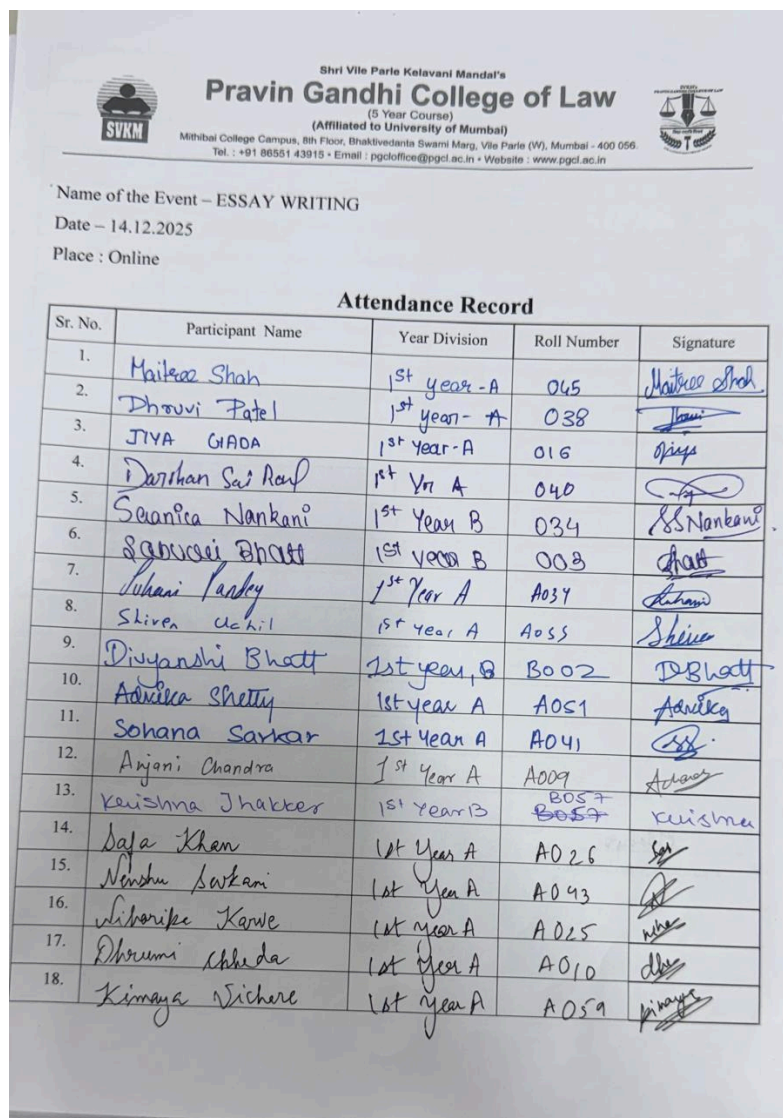 Shri Vile Parle Kelavani Mandal's
Pravin Gandhi College of Law
(5 Year Course)
(Affiliated to University of Mumbai)
Mithibai College Campus, 8th Floor, Bhaktivedanta Swami Marg, Vile Parle (W), Mumbai - 400 056.
Tel. : +91 86551 43915 • Email : pgcloffice@pgcl.ac.in • Website : www.pgcl.ac.in
SVKM
Name of the Event – ESSAY WRITING
Date – 14.12.2025
Place : Online
Attendance Record
Sr. No. Participant Name Year Division Roll Number Signature
1. Maitree Shah 1st year - A 045 Maitree Shah.
2. Dhruvi Patel 1st year - A 038
3. JIYA GADA 1st Year - A 016 Jiya
4. Darshan Sai 1st Yr A 040
5. Nankani 1st Year B 034 SSNankani.
6. Bhatt 1st year B 003 Bhatt
7. Juhani Pandey 1st Year A A034 Juhani
8. Shiven Uchil 1st year A A055 Shiven
9. Divyanshi Bhatt 1st year, B B002 DBhatt
10. Advika Shetty 1st year A A051 Advika
11. Sohana Sarkar 1st Year A A041
12. Anjani Chandra 1st Year A A009
13. Krishna Thakker 1st Year B B057 B057 Krishna
14. Safa Khan 1st Year A A026
15. Nenshu 1st Year A A043
16. Niharika Karve 1st Year A A025
17. Dhrumi Chheda 1st Year A A010
18. Kimaya Vichare 1st Year A A059 kimaya